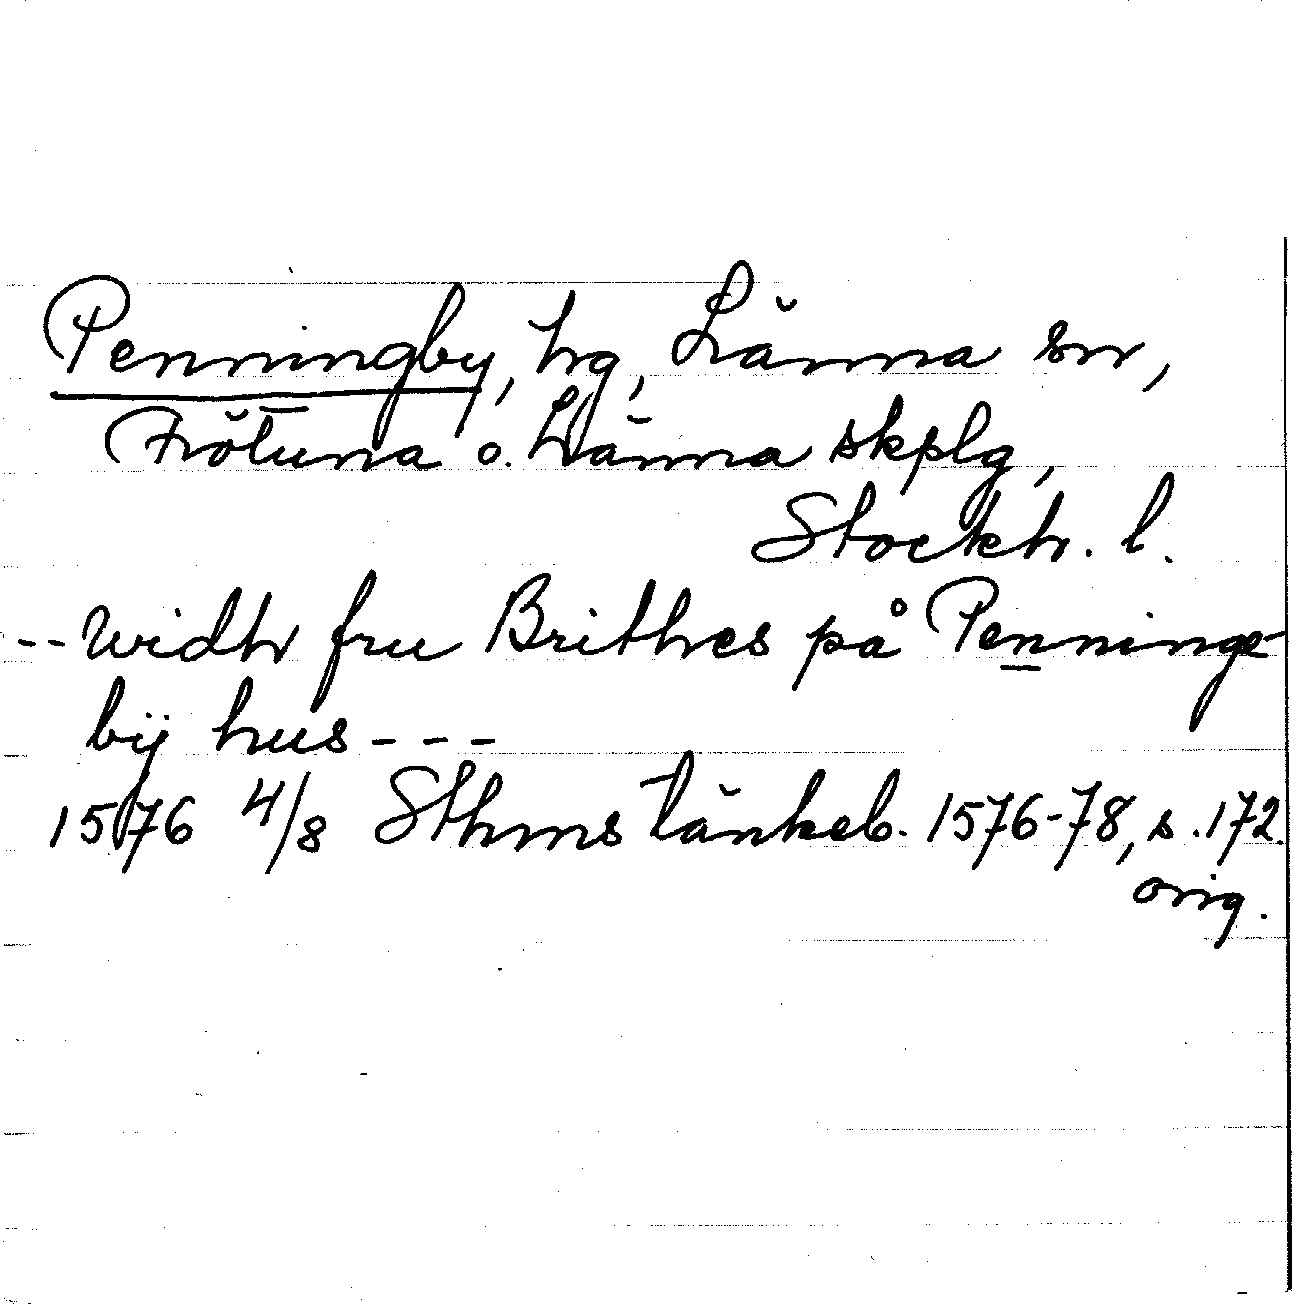 Penningby, hg, Länna sn,
Frötuna o. Länna skplg,
Stockh. l.
-- widh fru Brithes på Penninge-
bÿ hus - - -
1576 4/8 Sthms tänkeb. 1576-78, s. 172.
orig.